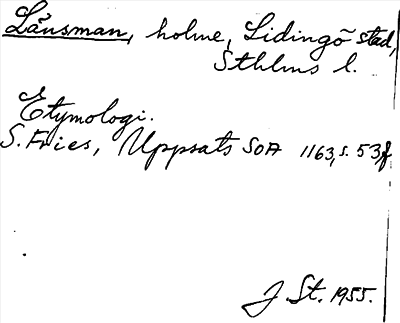 Länsman, holme, Lidingö stad,
Sthlms l.
Etymologi.
S. Fries, Uppsats SOA 1163, s. 53f
J St. 1955.